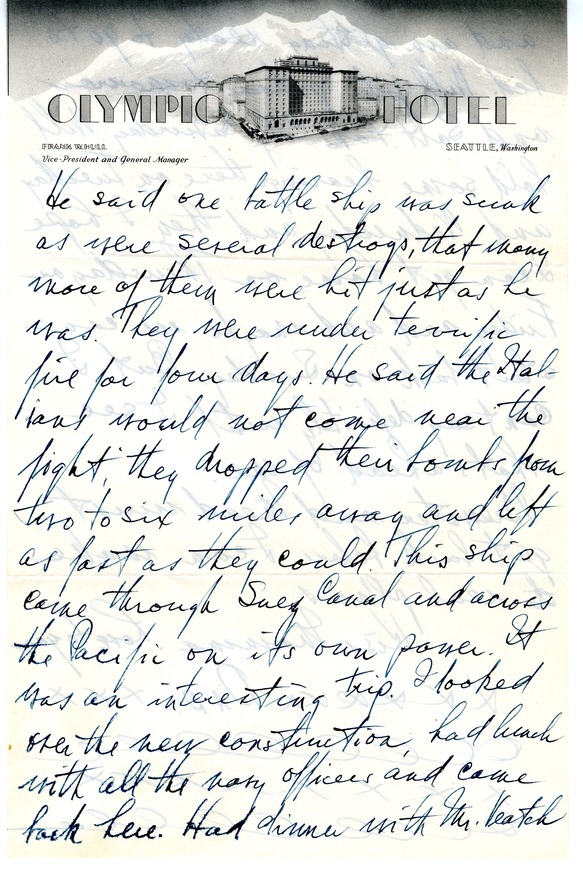 OLYMPIC HOTEL
FRANK W. HULL
Vice-President and General Manager
SEATTLE, Washington
He said one battle ship was sunk
as were several destroys, that many
more of them were hit just as he
was. They were under terrific
fire for four days. He said the Ital-
ians would not come near the
fight, they dropped their bombs from
two to six miles away and left
as fast as they could. This ship
came through Suez Canal and across
the Pacific on its own power. It
was an interesting trip. I looked
over the new construction, had lunch
with all the navy officers and came
back here. Had dinner with Mr. Veatch